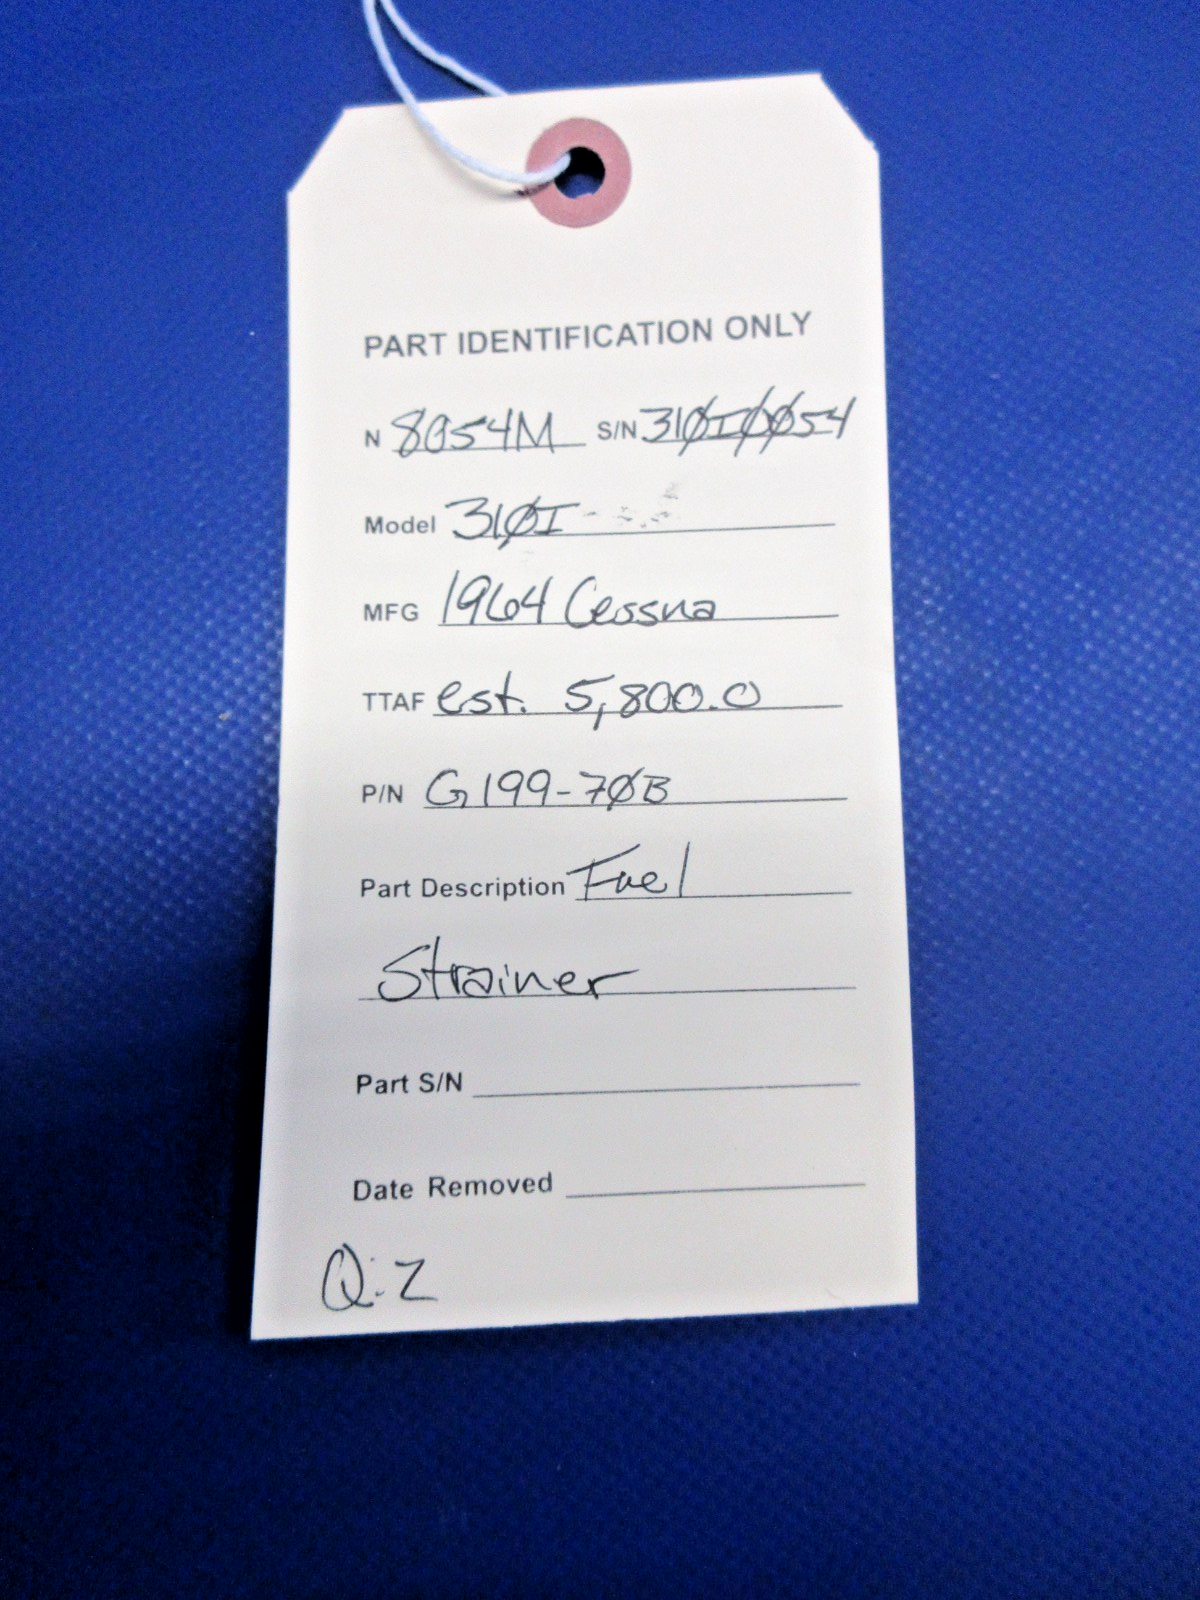 PART IDENTIFICATION ONLY
N 8054M S/N 310I0054
Model 310I
MFG 1964 Cessna
TTAF est. 5,800.0
P/N G199-70B
Part Description Fuel
Strainer
Part S/N
Date Removed
Q: 2